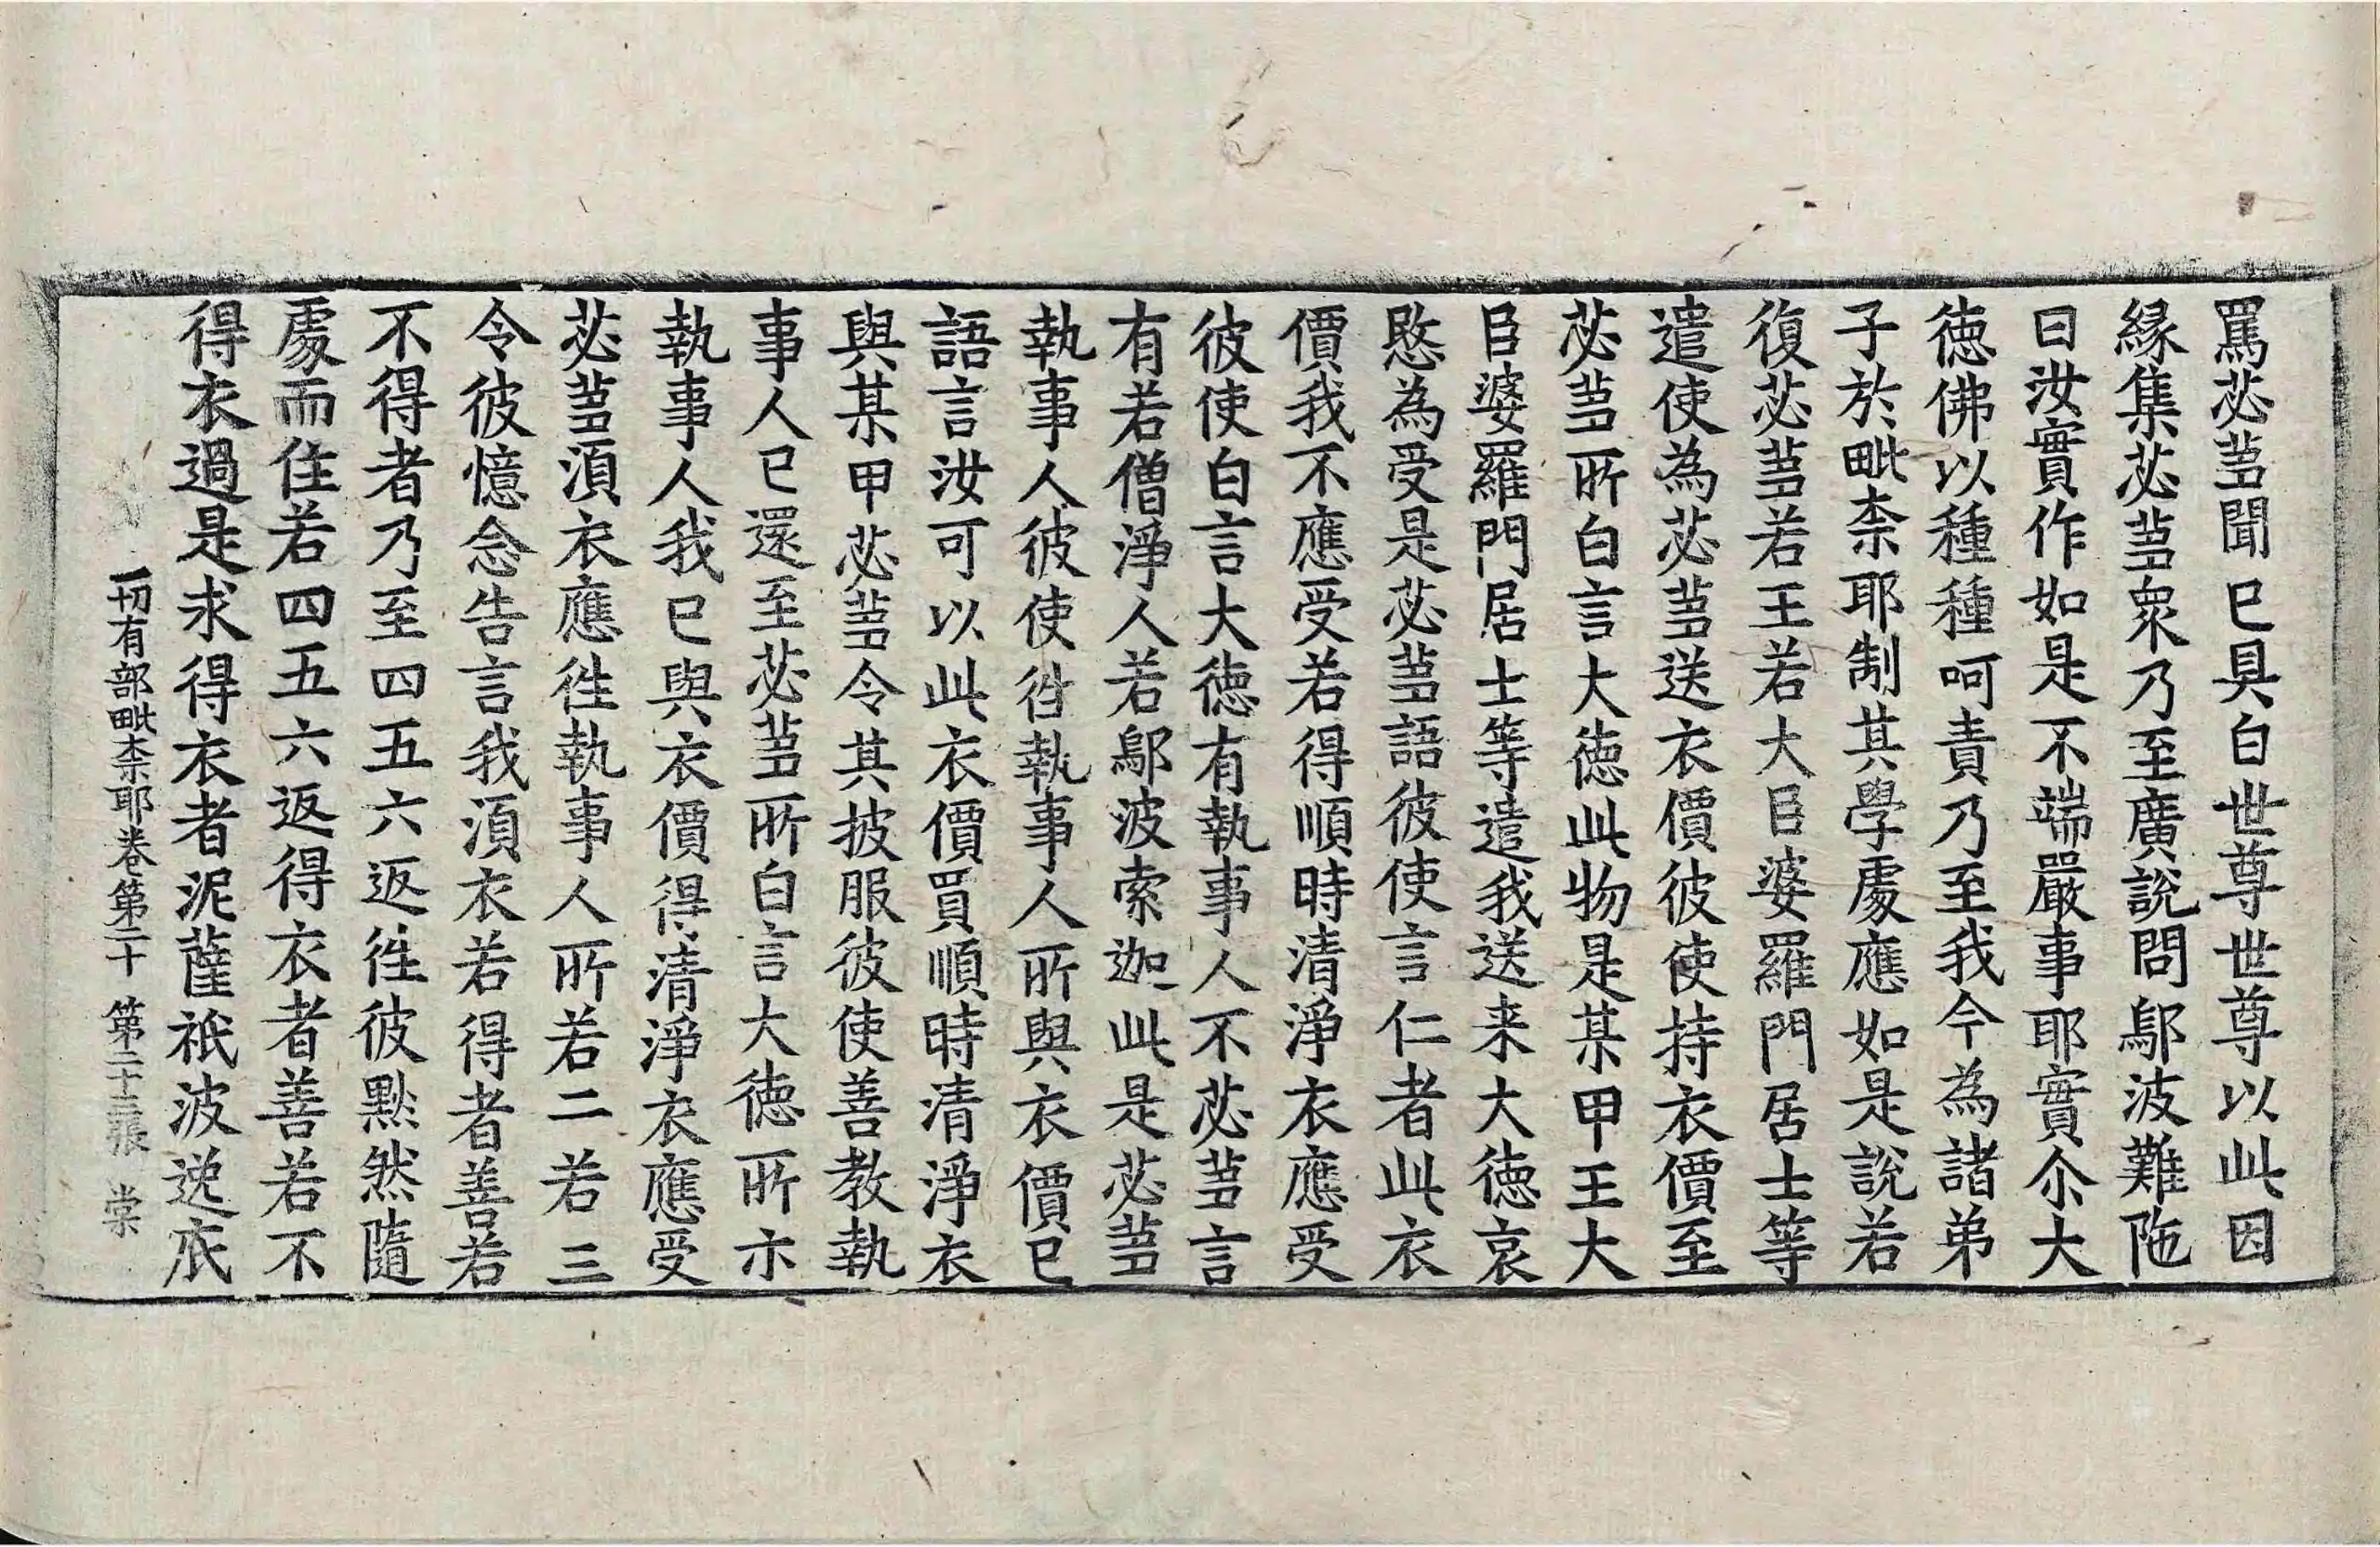 罵苾蒭聞已具白世尊世尊以此因
緣集苾蒭衆乃至廣說問鄔波難陁
曰汝實作如是不端嚴事耶實尒大
德佛以種種呵責乃至我今為諸弟
子於毗柰耶制其學處應如是說若
復苾蒭若王若大臣婆羅門居士等
遣使為苾蒭送衣價彼使持衣價至
苾蒭所白言大德此物是某甲王大
臣婆羅門居士等遣我送来大德哀
愍為受是苾蒭語彼使言仁者此衣
價我不應受若得順時清淨衣應受
彼使白言大德有執事人不苾蒭言
有若僧淨人若鄔波索迦此是苾蒭
執事人彼使徃執事人所與衣價已
語言汝可以此衣價買順時清淨衣
與某甲苾蒭令其披服彼使善教執
事人已還至苾蒭所白言大德所示
執事人我已與衣價得清淨衣應受
苾蒭湏衣應徃執事人所若二若三
令彼憶念告言我湏衣若得者善若
不得者乃至四五六返徃彼默然隨
處而住若四五六返得衣者善若不
得衣過是求得衣者泥薩祇波逸底
一切有部毗柰耶卷第二十 第二十三張 棠